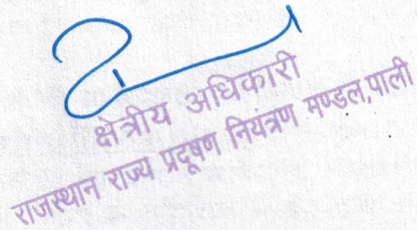 क्षेत्रीय अधिकारी
राजस्थान राज्य प्रदूषण नियंत्रण मण्डल,पाली